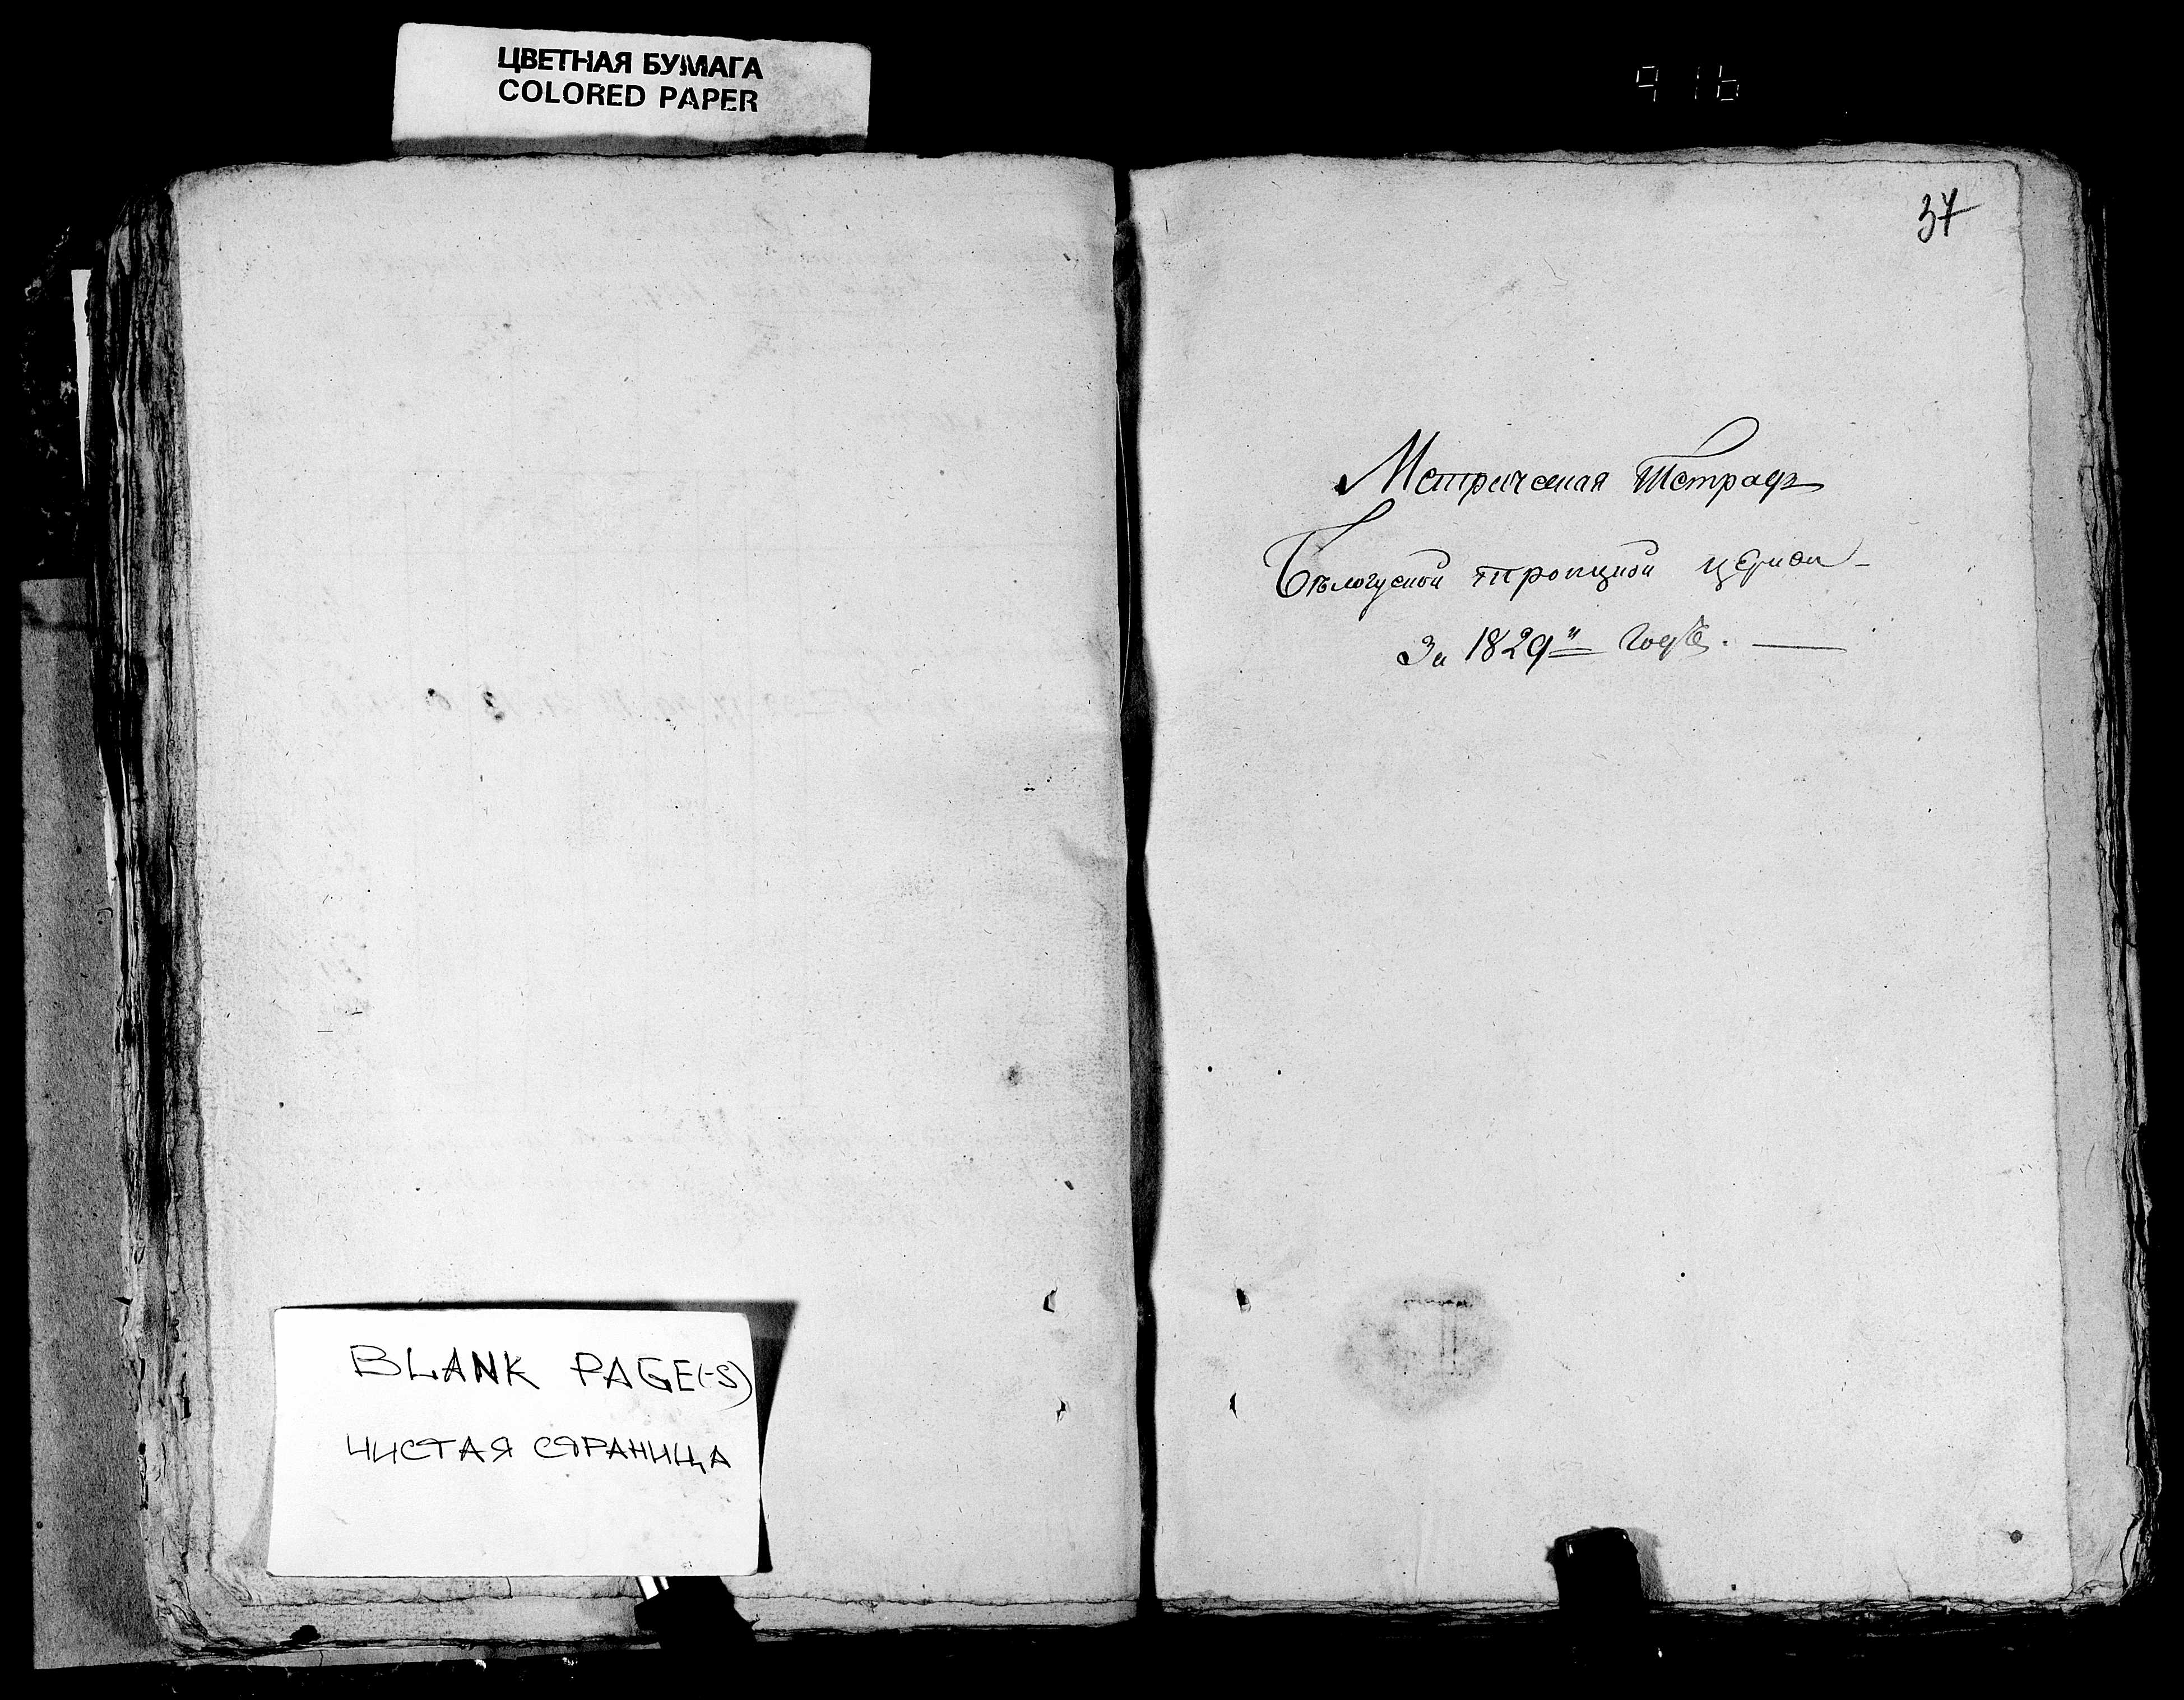 ЦВЕТНАЯ БУМАГА
COLORED PAPER
916
37
Метрическая Тетрадь
Бѣлогуской троицкой церкви
За 1829й Годъ.
BLANK PAGE(-S)
ЧИСТАЯ СТРАНИЦА